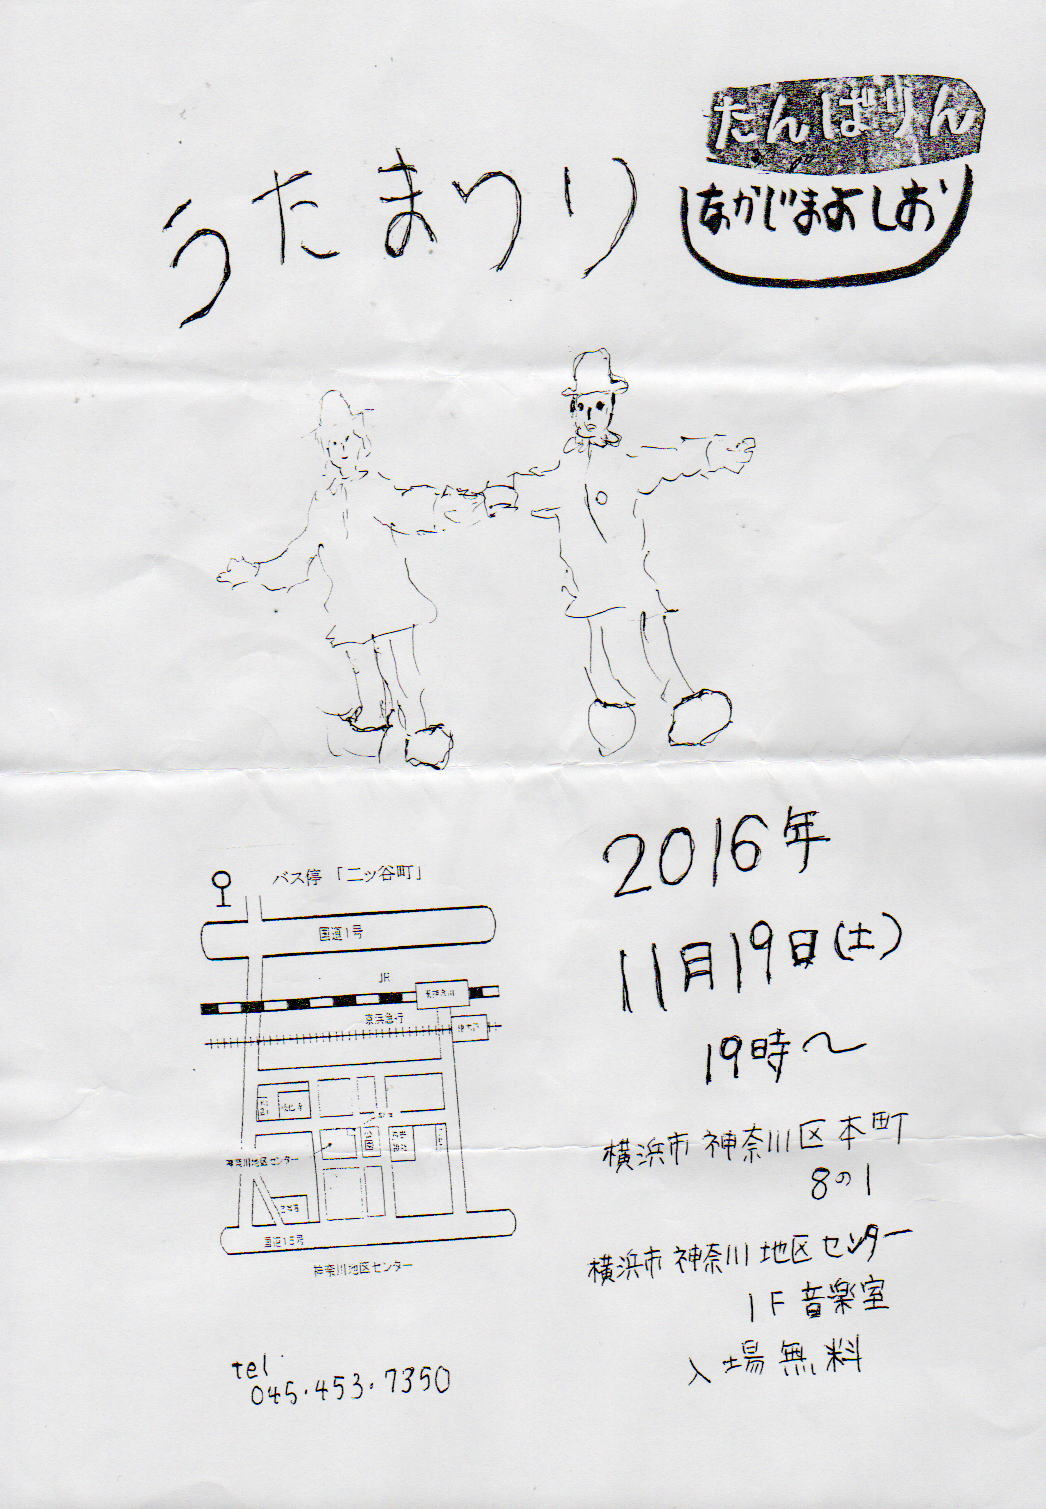 たんばりん
なかじまよしお
うたまつり
2016年
11月19日(土)
19時〜
横浜市神奈川区本町
8の1
横浜市神奈川地区センター
1F音楽室
入場無料
バス停「二ッ谷町」
国道1号
JR
京浜急行
公園
神奈川地区センター
国道15号
神奈川地区センター
tel
045.453.7350